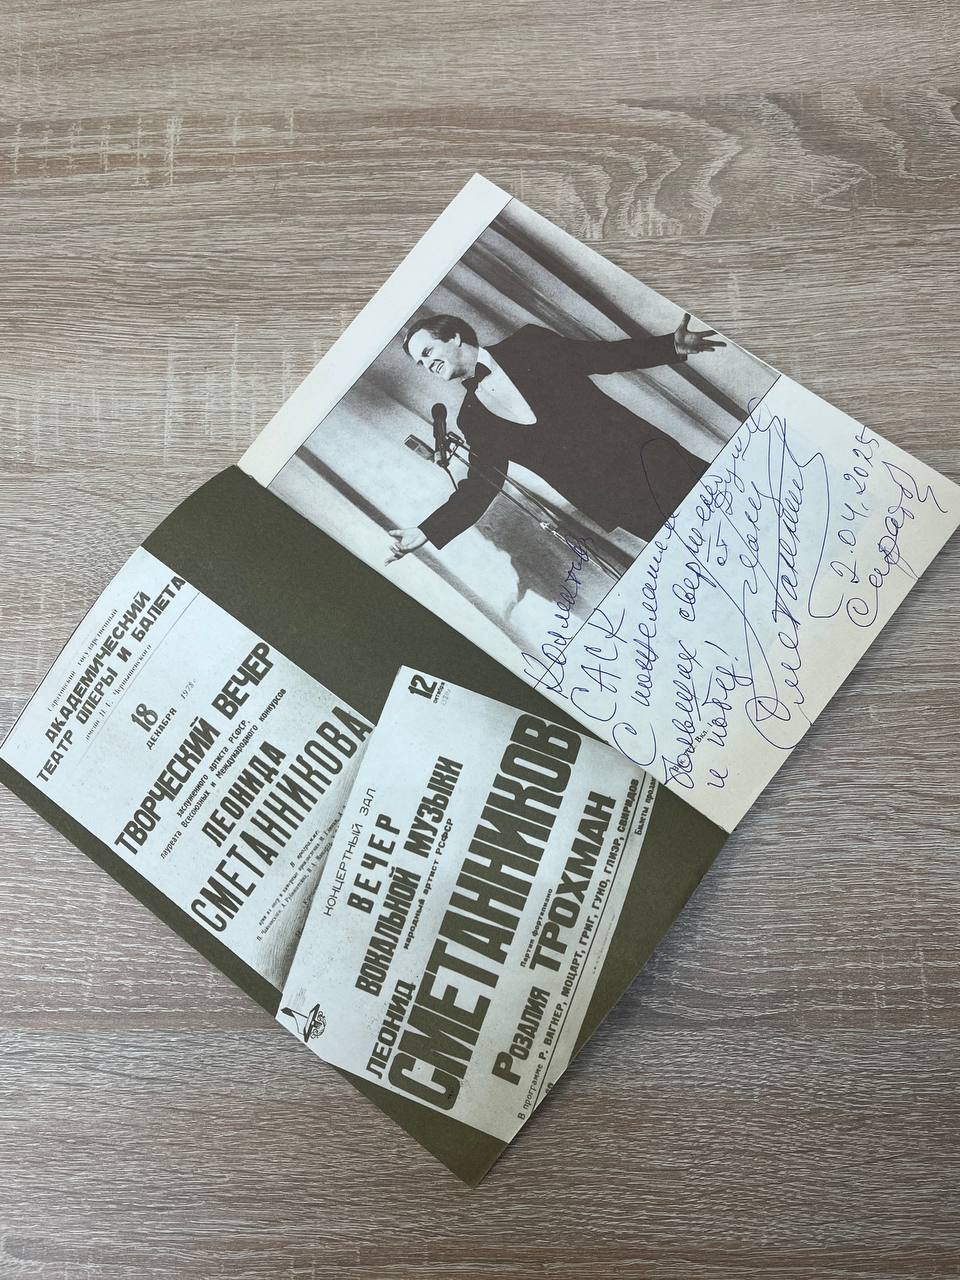 Саратовский государственный
АКАДЕМИЧЕСКИЙ
ТЕАТР ОПЕРЫ И БАЛЕТА
имени Н. Г. Чернышевского
18
ДЕКАБРЯ
1978 г.
ТВОРЧЕСКИЙ ВЕЧЕР
заслуженного артиста РСФСР,
лауреата Всесоюзных и Международного конкурсов
ЛЕОНИДА
СМЕТАННИКОВА
В программе:
12
октября
КОНЦЕРТНЫЙ ЗАЛ
ВЕЧЕР
ВОКАЛЬНОЙ МУЗЫКИ
народный артист РСФСР
ЛЕОНИД
СМЕТАННИКОВ
Партия фортепиано
РОЗАЛИЯ ТРОХМАН
В программе Р. ВАГНЕР, МОЦАРТ, ГРИГ, ГУНО, ГЛИЭР, СВИРИДОВ
Билеты прода
Коллективу
САСК
С пожеланием
больших свершений
и побед!
от души
Сметанников
2.04.2025
Саратов
Вкл.